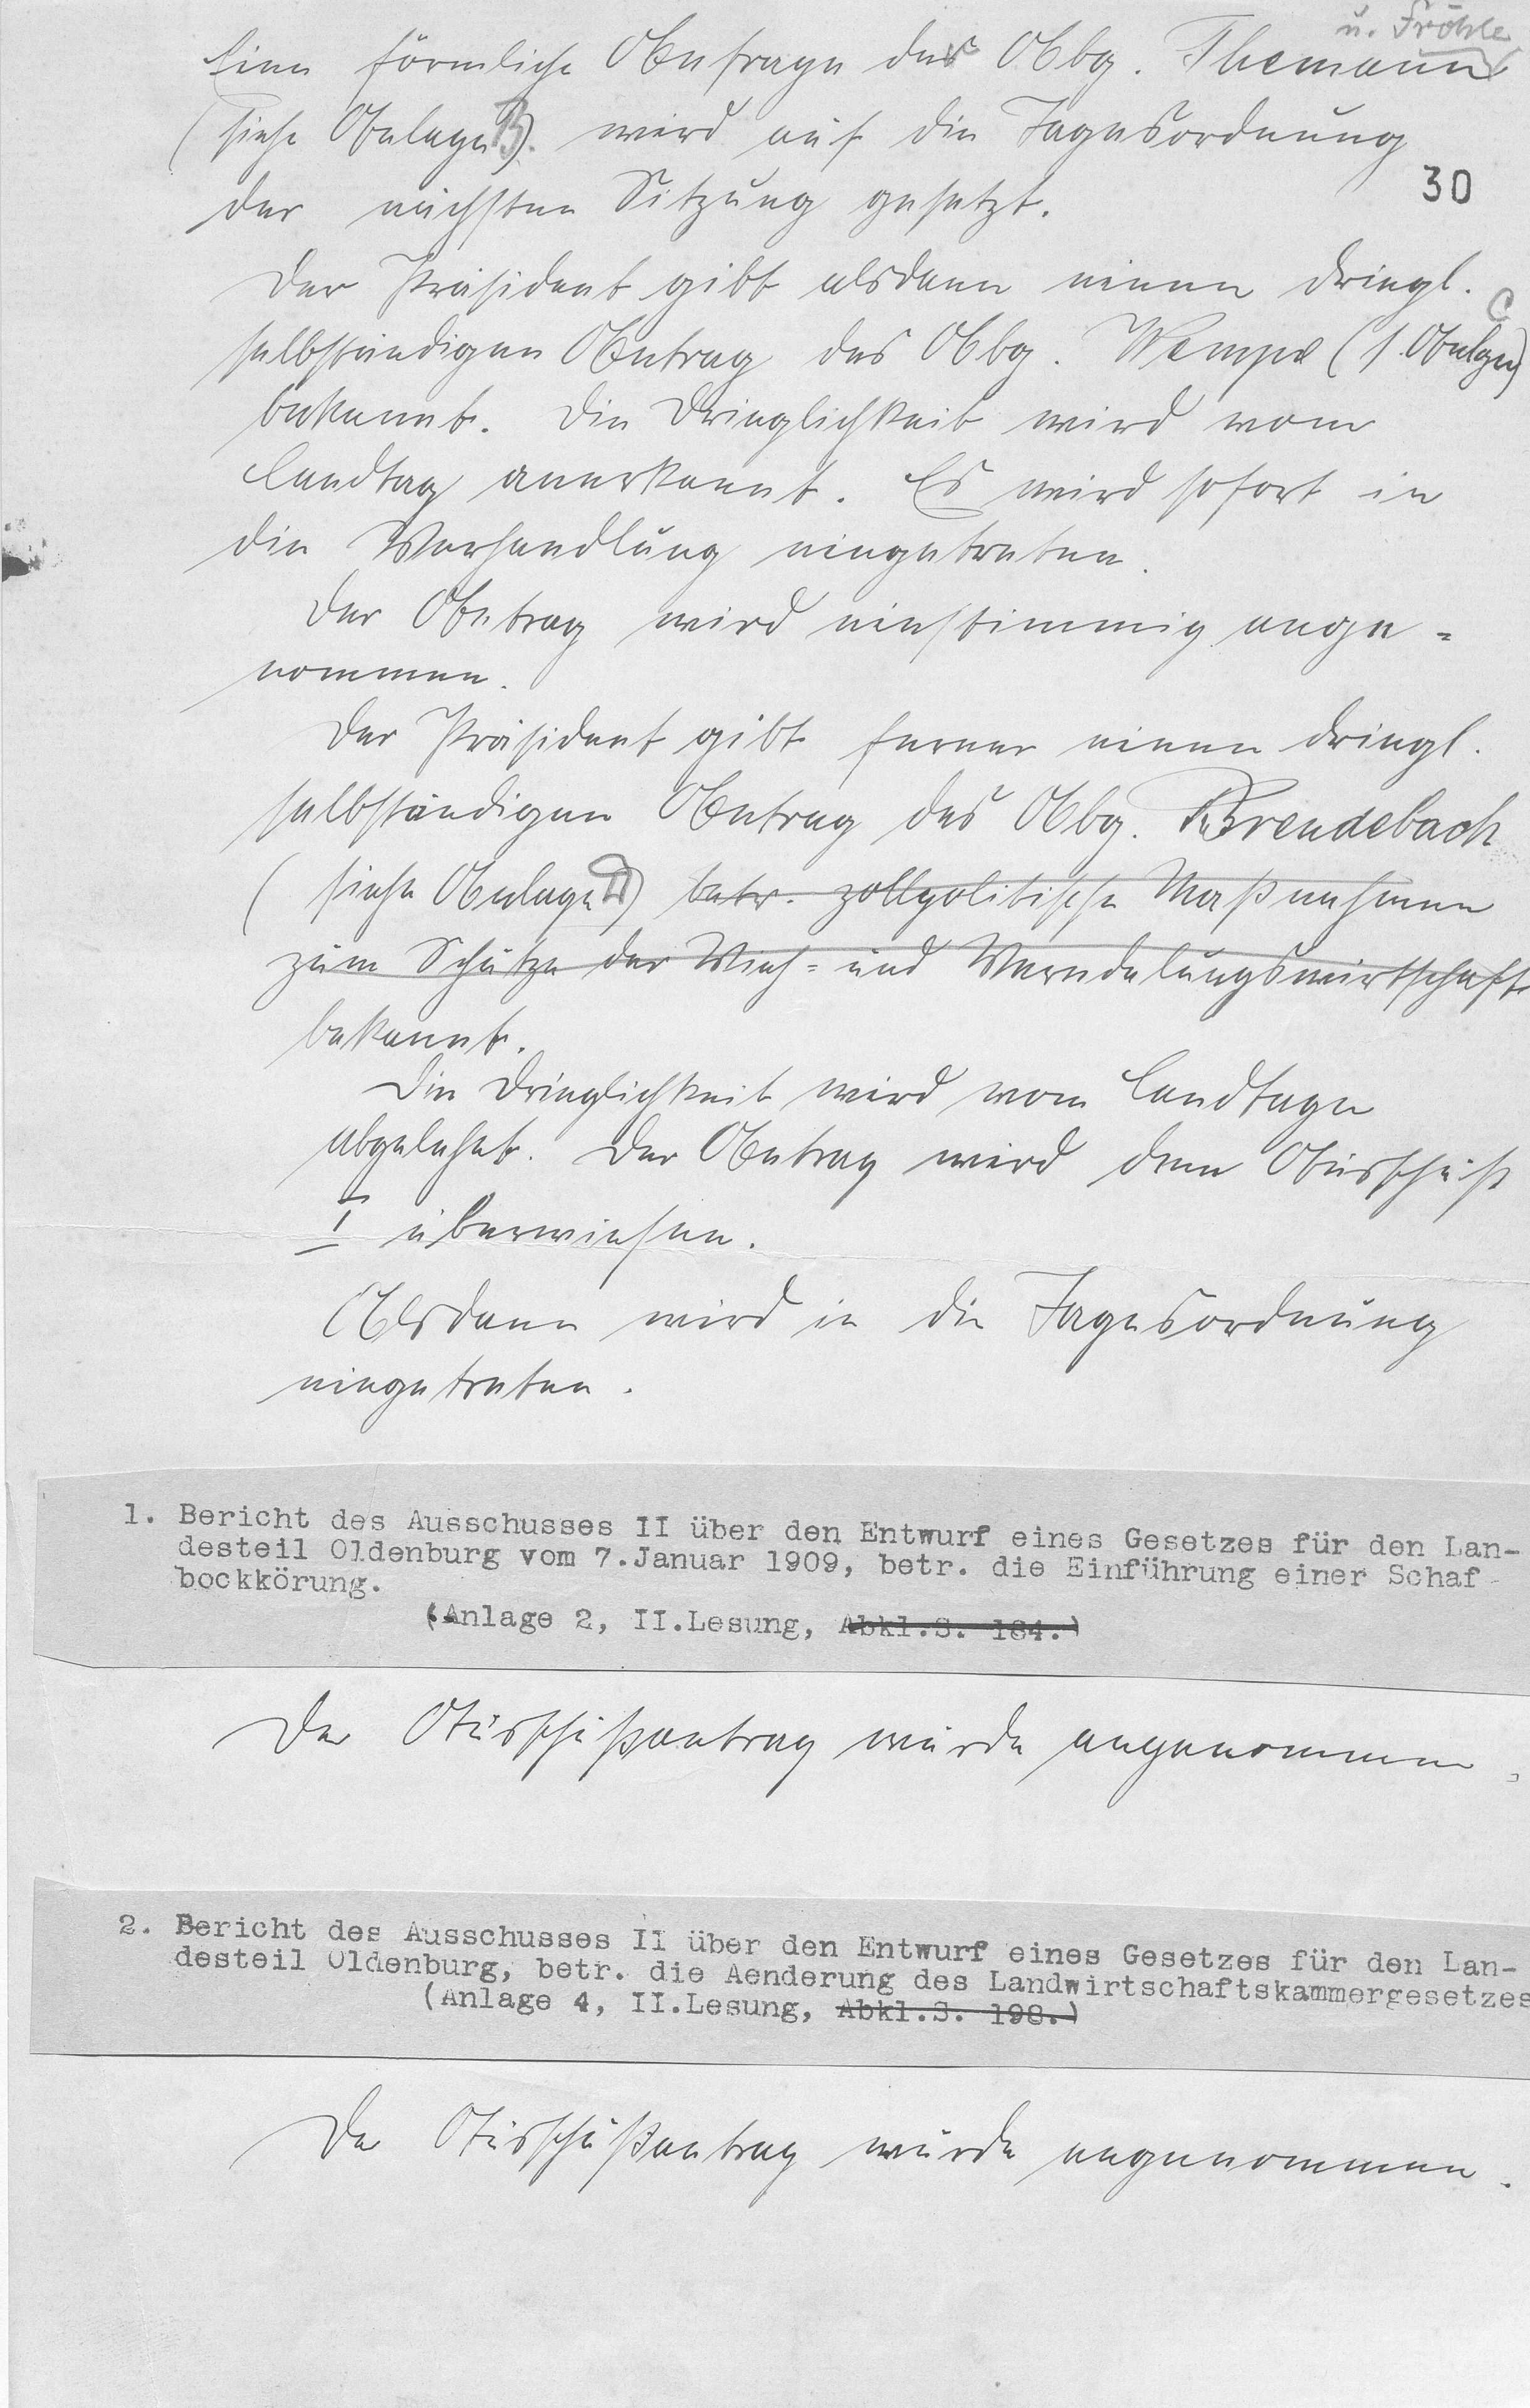 u. Fröhle
Eine förmliche Anfrage der Abg. Themann
(siehe Anlage B). wird auf die Tagesordnung
30
der nächsten Sitzung gesetzt.
Der Präsident gibt alsdann einen dringl.
selbständigen Antrag des Abg. Wempe (s. Anlage C)
bekannt. Die Dringlichkeit wird vom
Landtag anerkannt. Es wird sofort in
die Verhandlung eingetreten.
Der Antrag wird einstimmig ange-
nommen.
Der Präsident gibt ferner einen dringl.
selbständigen Antrag des Abg. Brendebach
(siehe Anlage D) betr. zollpolitische Maßnahmen
zum Schutze der Vieh- und Veredelungswirtschaft
bekannt.
Die Dringlichkeit wird vom Landtage
abgelehnt. Der Antrag wird dem Ausschuß
I überwiesen.
Alsdann wird in die Tagesordnung
eingetreten.
1. Bericht des Ausschusses II über den Entwurf eines Gesetzes für den Lan-
desteil Oldenburg vom 7.Januar 1909, betr. die Einführung einer Schaf-
bockkörung.
(Anlage 2, II.Lesung, Abkl.S. 184.)
Der Ausschußantrag wurde angenommen.
2. Bericht des Ausschusses II über den Entwurf eines Gesetzes für den Lan-
desteil Oldenburg, betr. die Aenderung des Landwirtschaftskammergesetzes
(Anlage 4, II.Lesung, Abkl.S. 198.)
Der Ausschußantrag wurde angenommen.